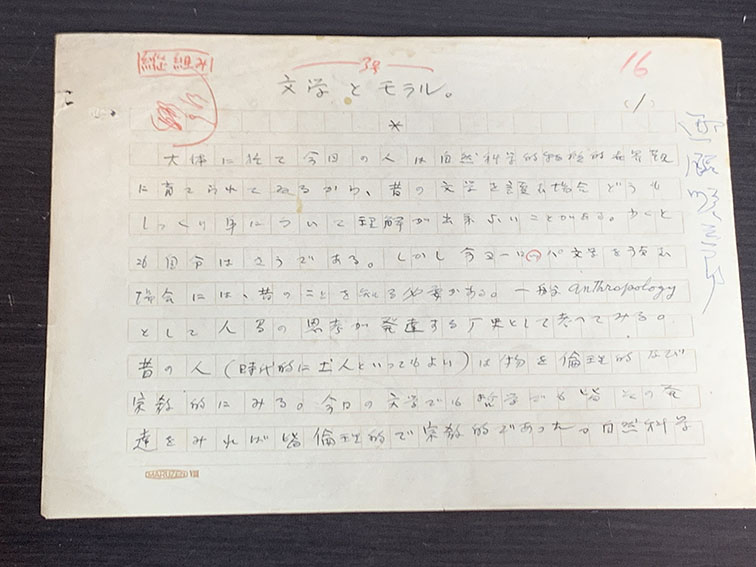 38
16
文学とモラル。
(1)
西脇順三郎
*
大体に於て今日の人は自然科学的物理的世界観
に育てられてゐるから、昔の文学を読む場合どうも
しつくり身について理解が出来ないことがある。少くと
も自分はさうである。しかし今ヨーロッパ文学を読む
場合には、昔のことを知る必要がある。一般 anthropology
として人間の思考が発達する歴史として考へてみる。
昔の人(時代的に土人といつてもよい)は物を倫理的及び
宗教的にみる。今日の文学でも哲学でも皆その発
達をみれば皆倫理的で宗教的であつた。自然科学
MARUZEN VIII